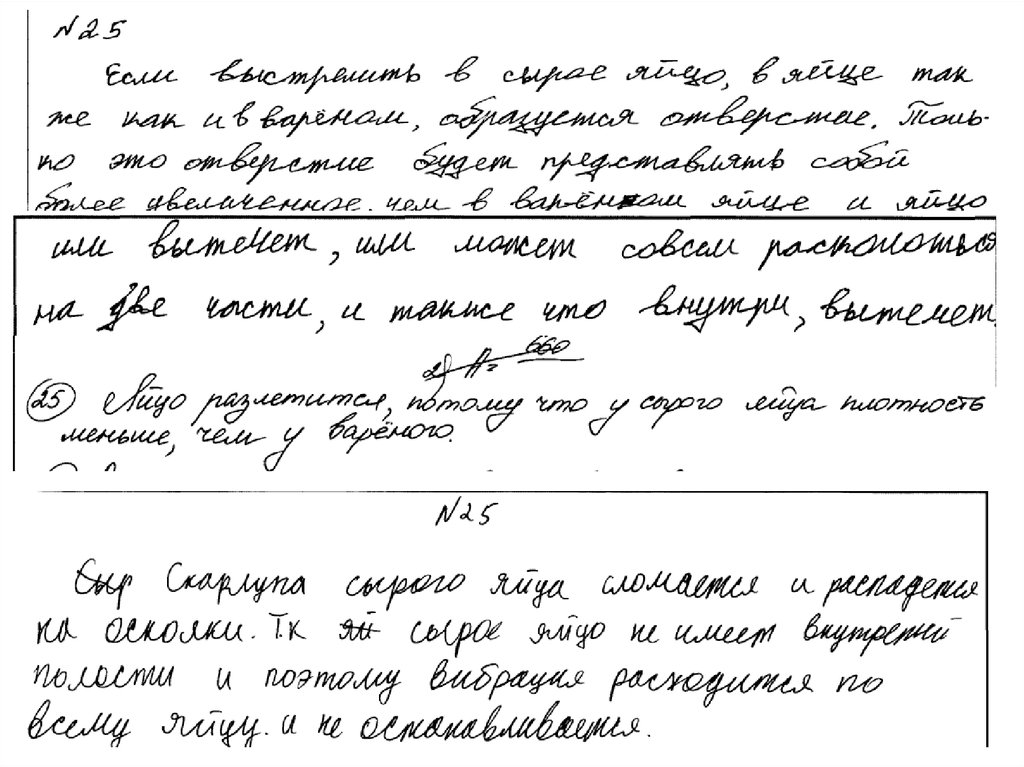 N25
Если выстрелить в сырое яйцо, в яйце так
же как и в варёном, образуется отверстие. Толь-
ко это отверстие будет представлять собой
более увеличенное. чем в варёном яйце и яйцо
или вытечет, или может совсем расколоться
на две части, и также что внутри, вытечет.
2) A= 660
25 Яйцо разлетится, потому что у сырого яйца плотность
меньше, чем у варёного.
N25
Сыр Скарлупа сырого яйца сломается и распадется
на осколки. Т.к яй сырое яйцо не имеет внутренней
полости и поэтому вибрация расходится по
всему яйцу. и не останавливается.